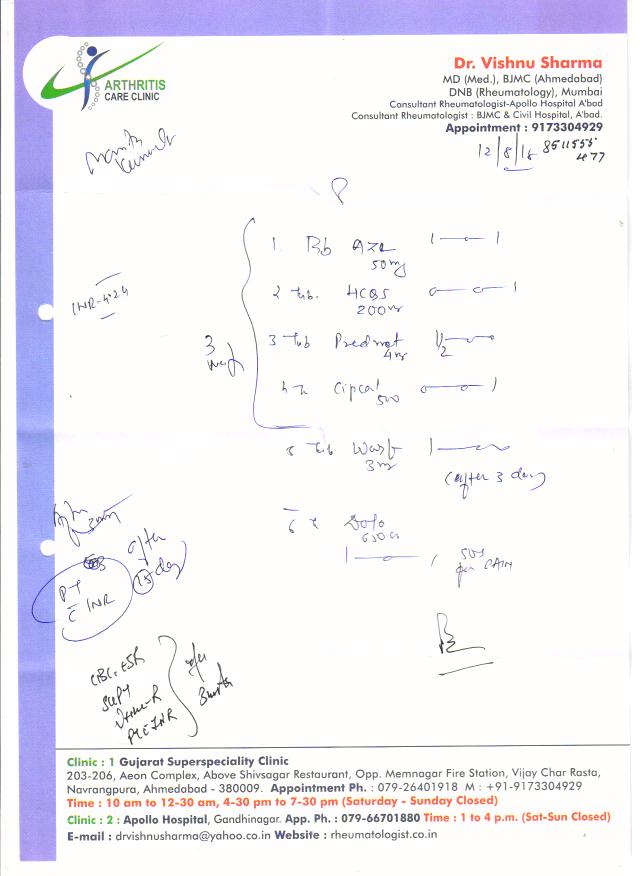 ARTHRITIS
CARE CLINIC
Dr. Vishnu Sharma
MD (Med.), BJMC (Ahmedabad)
DNB (Rheumatology), Mumbai
Consultant Rheumatologist-Apollo Hospital A'bad
Consultant Rheumatologist : BJMC & Civil Hospital, A'bad.
Appointment : 9173304929
12/8/18 8511555
477
1. Tab AZR 1—o—1
50mg
INR-4.24
2 Tab. HCQS o—o—1
200
3 Tab Predmet 1/2—o—o
4
3
4 Cipcal o—o—1
500
5 Tab Warf 1—o—o
3
(after 3 day)
6 Dolo
650
1—o—1 SOS
for PAIN
after
15 day
PT
c INR
CBC, ESR
SGPT
Urine-R
PT c INR
after
Clinic : 1 Gujarat Superspeciality Clinic
203-206, Aeon Complex, Above Shivsagar Restaurant, Opp. Memnagar Fire Station, Vijay Char Rasta,
Navrangpura, Ahmedabad - 380009. Appointment Ph. : 079-26401918 M : +91-9173304929
Time : 10 am to 12-30 am, 4-30 pm to 7-30 pm (Saturday - Sunday Closed)
Clinic : 2 : Apollo Hospital, Gandhinagar. App. Ph. : 079-66701880 Time : 1 to 4 p.m. (Sat-Sun Closed)
E-mail : drvishnusharma@yahoo.co.in Website : rheumatologist.co.in